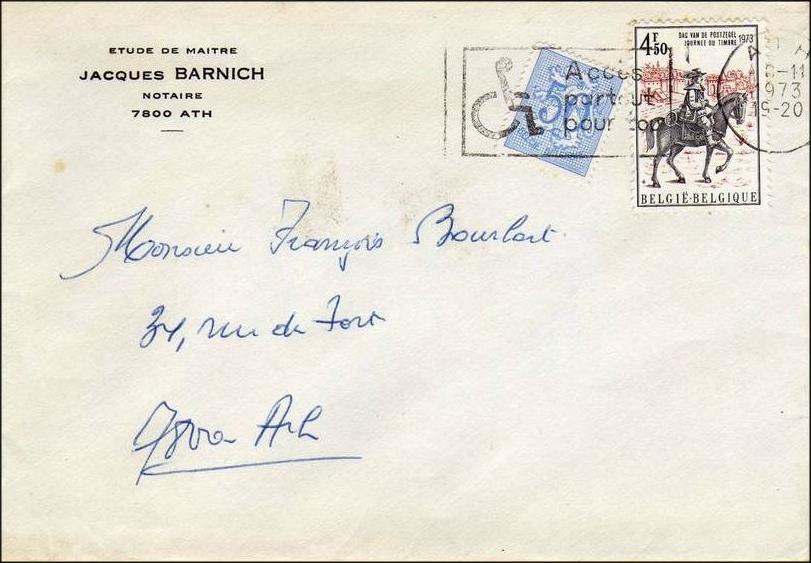 ETUDE DE MAITRE
JACQUES BARNICH
NOTAIRE
7800 ATH
Acces
partout
pour
4F50
DAG VAN DE POSTZEGEL
JOURNEE DU TIMBRE 1973
BELGIË-BELGIQUE
-11
1973
19-20
Monsieur François Bourlart
34, rue du Fort
7800 Ath